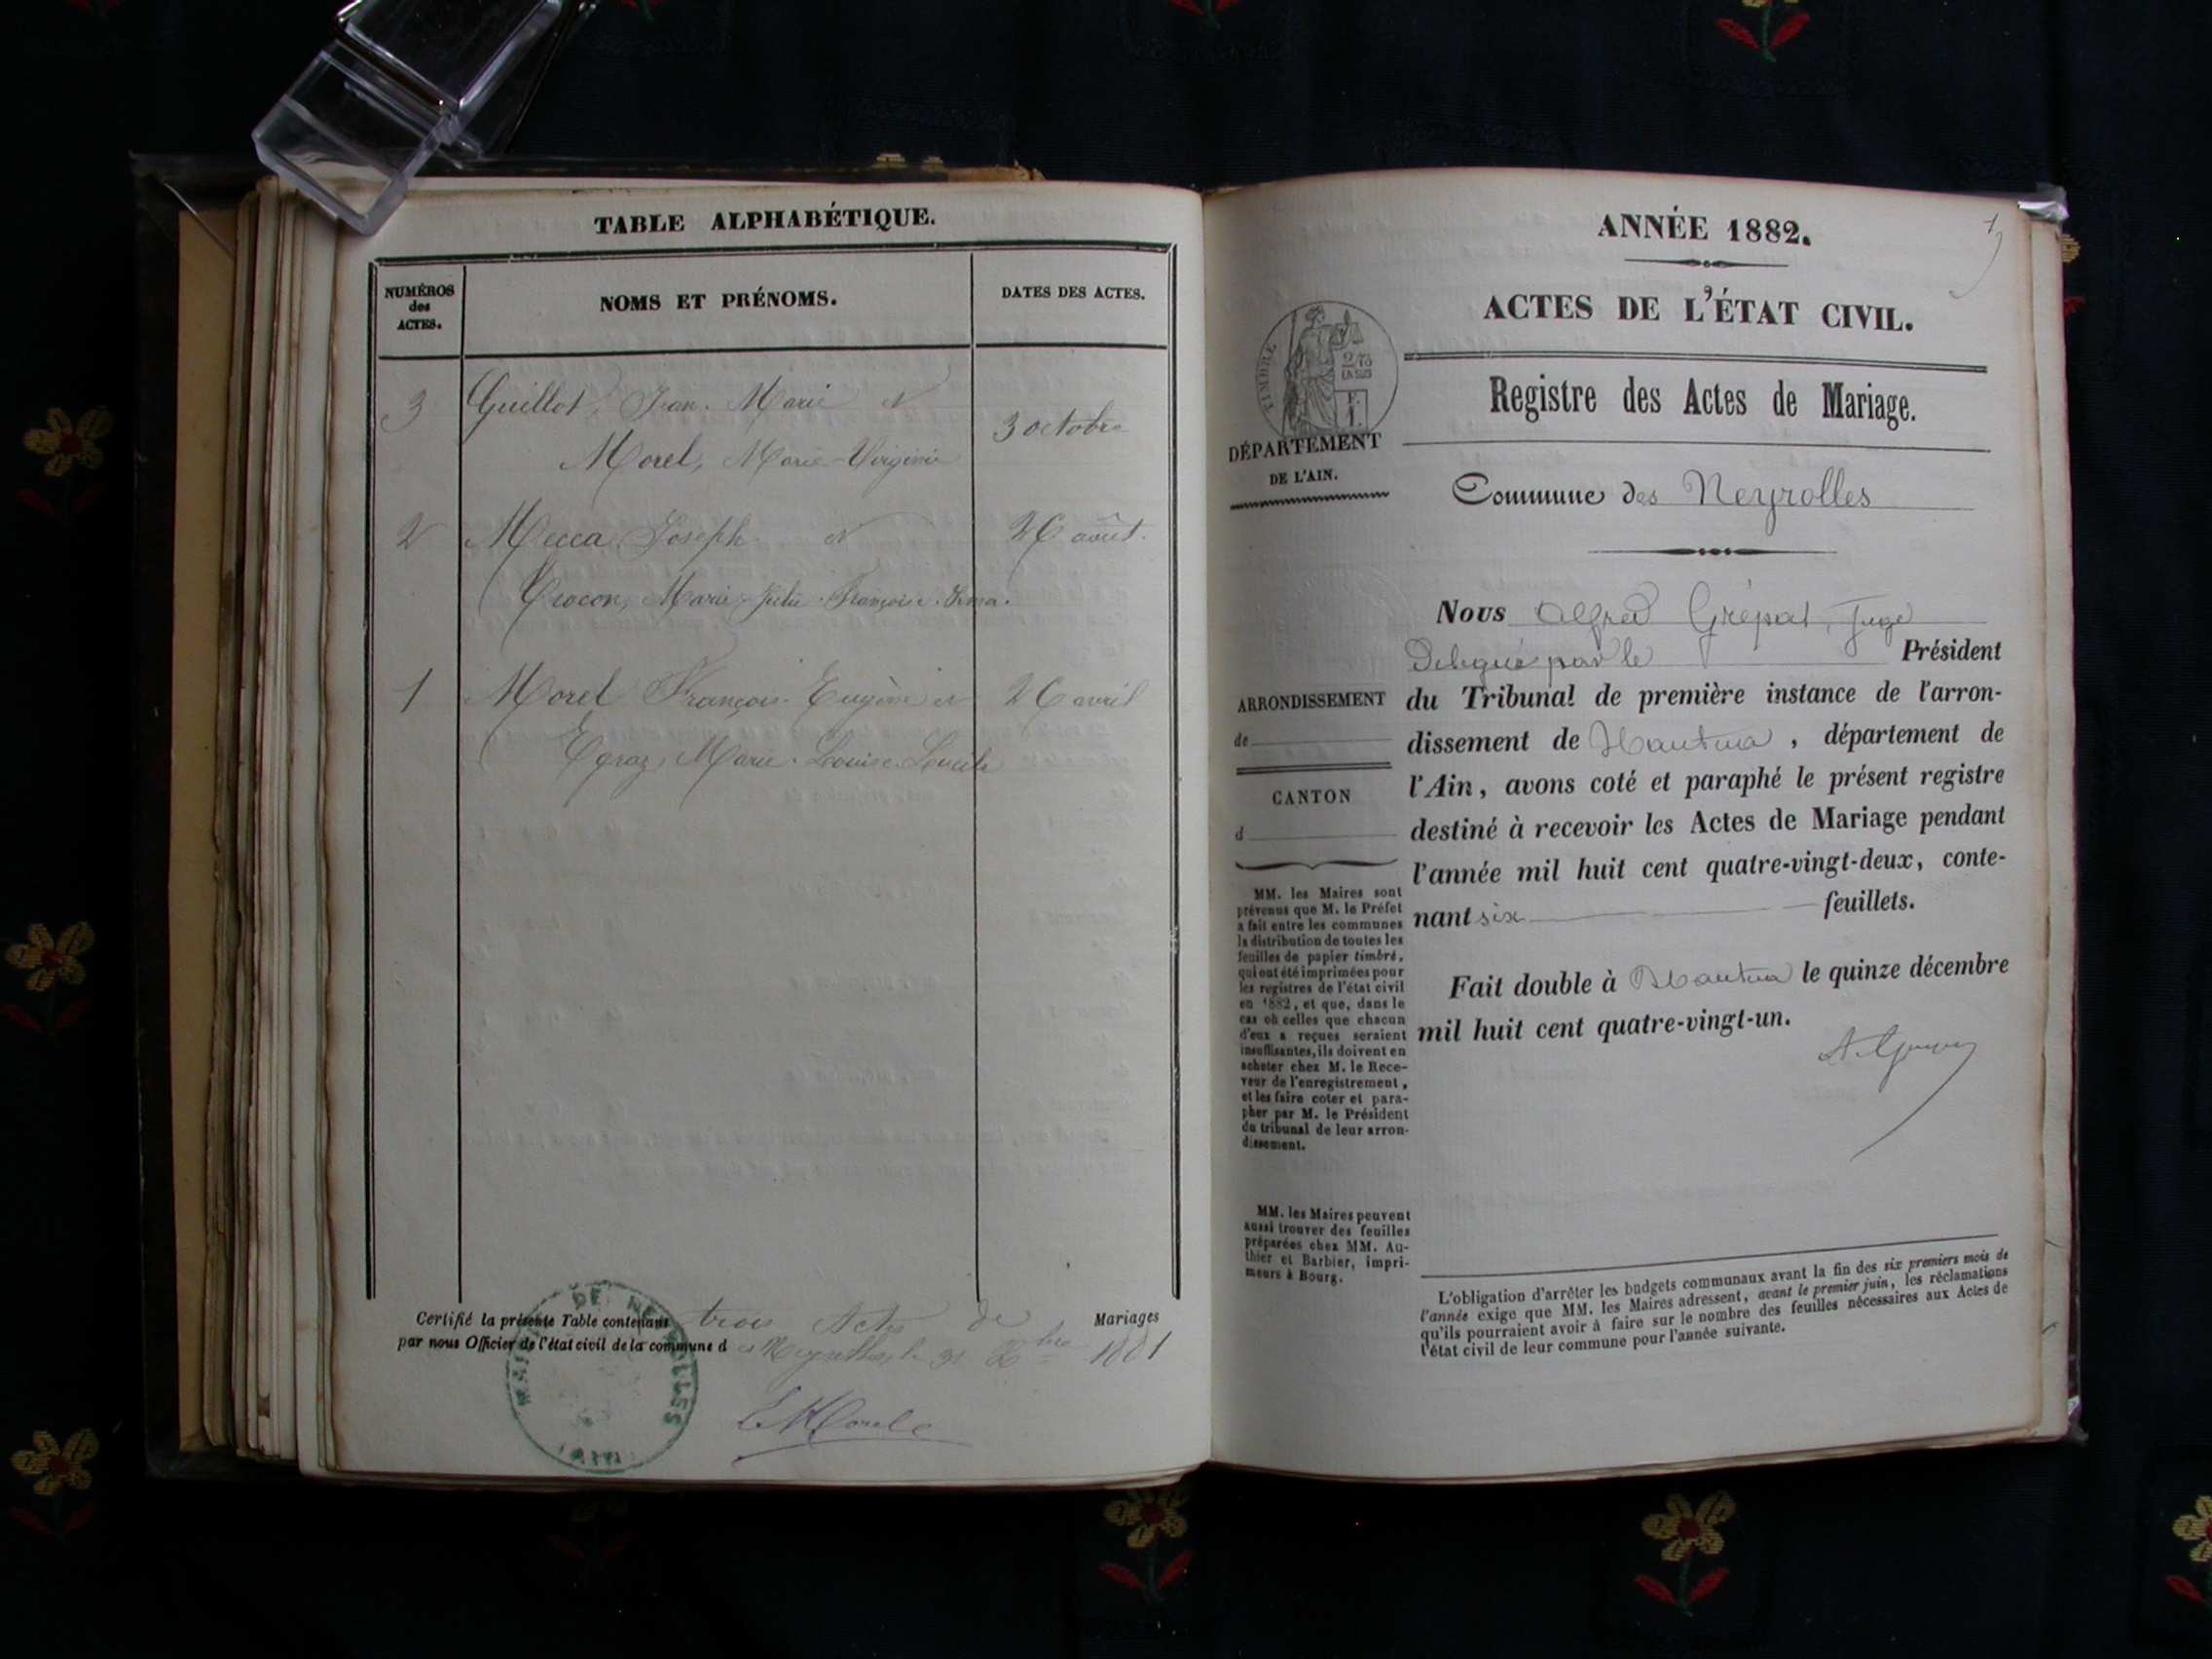 TABLE ALPHABÉTIQUE.
NUMÉROS
des
ACTES.
NOMS ET PRÉNOMS.
DATES DES ACTES.
3 Guillot, Jean-Marie et
3 octobre
Morel, Marie-Virginie
2 Mecca Joseph et 26 août.
Marie-Julie-Françoise
1 Morel François-Eugène et 26 avril
Marie-Louise
Certifié la présente Table contenant trois Actes de Mariages
par nous Officier de l'état civil de la commune d es Neyrolles, le 31 Xbre 1881
MAIRIE DE NEYROLLES
(AIN)
1
ANNÉE 1882.
ACTES DE L'ÉTAT CIVIL.
TIMBRE
2/10
EN SUS
F.
1.
DÉPARTEMENT
DE L'AIN.
Registre des Actes de Mariage.
Commune des Neyrolles
Nous Alfred Grépat, Juge
Délégué par le Président
du Tribunal de première instance de l'arron-
dissement de Nantua, département de
l'Ain, avons coté et paraphé le présent registre
destiné à recevoir les Actes de Mariage pendant
l'année mil huit cent quatre-vingt-deux, conte-
nant six feuillets.
Fait double à Nantua le quinze décembre
mil huit cent quatre-vingt-un.
ARRONDISSEMENT
de
CANTON
d
MM. les Maires sont
prévenus que M. le Préfet
a fait entre les communes
la distribution de toutes les
feuilles de papier timbré,
qui ont été imprimées pour
les registres de l'état civil
en 1882, et que, dans le
cas où celles que chacun
d'eux a reçues seraient
insuffisantes, ils doivent en
acheter chez M. le Rece-
veur de l'enregistrement,
et les faire coter et para-
pher par M. le Président
du tribunal de leur arron-
dissement.
MM. les Maires peuvent
aussi trouver des feuilles
préparées chez MM. Au-
thier et Barbier, impri-
meurs à Bourg.
L'obligation d'arrêter les budgets communaux avant la fin des six premiers mois de
l'année exige que MM. les Maires adressent, avant le premier juin, les réclamations
qu'ils pourraient avoir à faire sur le nombre des feuilles nécessaires aux Actes de
l'état civil de leur commune pour l'année suivante.